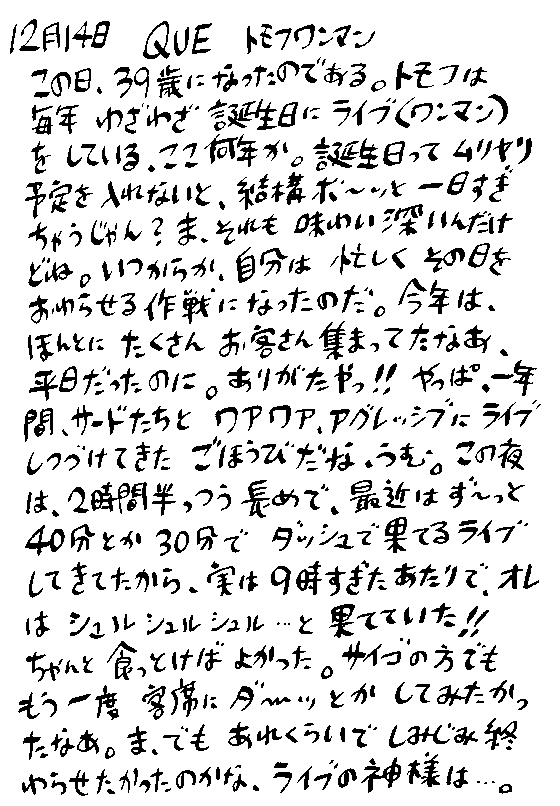 12月14日 QUE トモフワンマン
この日、39歳になったのである。トモフは
毎年 わざわざ 誕生日に ライブ(ワンマン)
をしている、ここ何年か。誕生日って ムリヤリ
予定を入れないと、結構ボ〜ッと 一日すぎ
ちゃうじゃん？ま、それも 味わい深いんだけ
どね。いつからか、自分は 忙しく その日を
おわらせる作戦になったのだ。今年は、
ほんとに たくさん お客さん集まってたなあ、
平日だったのに。ありがたやっ!! やっぱ、一年
間、サードたちと ワアワア、アグレッシブに ライブ
しつづけてきた ごほうびだな、うむ。この夜
は、2時間半っつう長めで、最近はず〜っと
40分とか30分で ダッシュで果てるライブ
してきてたから、実は9時すぎたあたりで、オレ
は シュルシュルシュル…と 果てていた!!
ちゃんと 食っとけば よかった。サイゴの方でも
もう一度 客席に ダ〜ッとか してみたかっ
たなあ。ま、でも あれくらいで しみじみ終
わらせたかったのかな、ライブの神様は…。